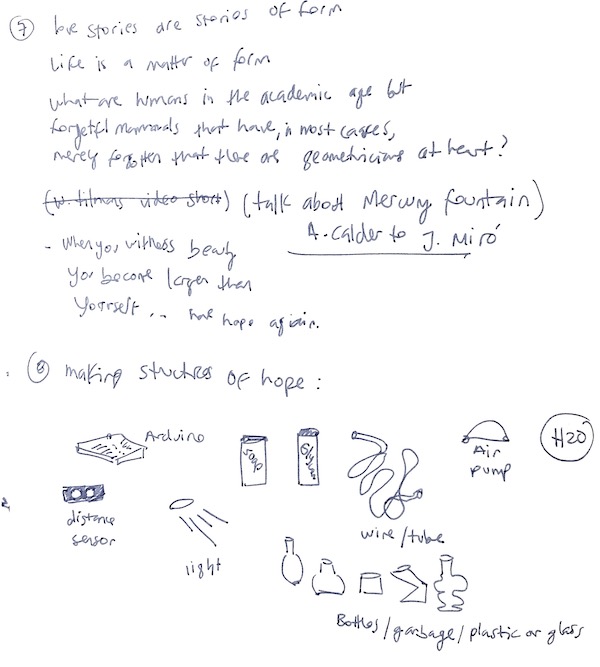 ⑦ love stories are stories of form
Life is a matter of form
what are humans in the academic age but
forgetful mammals that have, in most cases,
merely forgotten that there are geometricians at heart?
(w. tilmans video short) (talk about Mercury fountain)
A. Calder to J. Miró
- When you witness beauty
you become larger than
yourself... have hope again.
⑧ making structures of hope:
Arduino
soap
Air
pump
H2O
distance
sensor
light
wire/tube
Bottles/garbage/plastic or glass